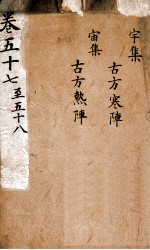 宇集
古方寒陣
宙集
古方熱陣
卷五十七至五十八